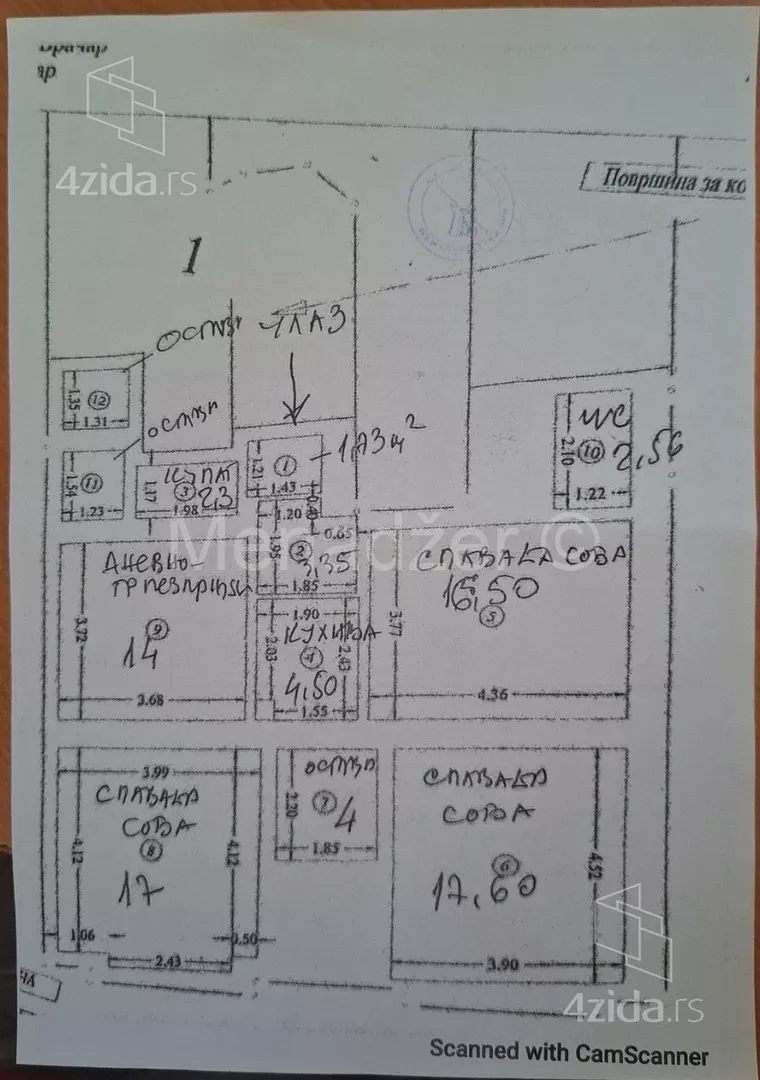 4zida.rs
Површина за ко
1
ОСТАВА
УЛАЗ
ОСТАВА
1.35
12
1.31
1.54
11
1.23
КУПАТ
3
2,3
1.17
1.98
1.21
1
1.43
1,73 м²
WC
2.10
10
2,56
1.22
1.20
0.40
0.65
1.95
2
3,35
1.85
Menadžer ©
ДНЕВНО-
ТРПЕЗАРИЈА
3.72
9
14
3.68
1.90
КУХИЊА
2.03
4
2.43
4,50
1.55
СПАВАЋА СОБА
16,50
5
3.77
4.36
3.99
СПАВАЋА
СОБА
4.12
8
4.12
17
1.06
0.50
2.43
ОСТАВА
2.20
7
4
1.85
СПАВАЋА
СОБА
6
17,60
4.52
3.90
4zida.rs
Scanned with CamScanner